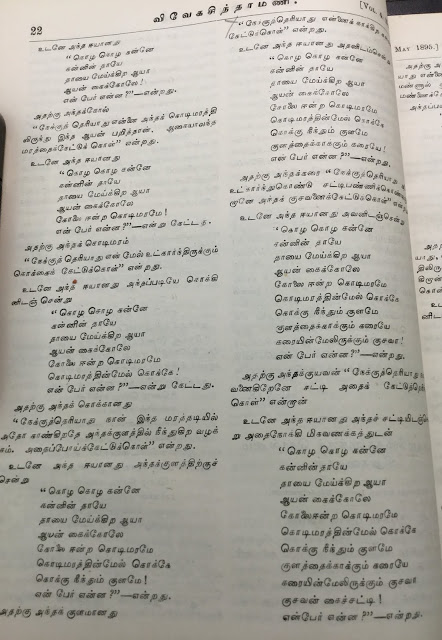 22
விவேகசிந்தாமணி.
[VOL. 4
உடனே அந்த ஈயானது
“கொழு கொழு கன்னே
கன்னின் தாயே
தாயை மேய்க்கிற ஆயா
ஆயன் கைக்கோலே!
என் பேர் என்ன?”—என்றது.
அதற்கு அந்தக்கோல்
“நேக்குந் தெரியாது என்னை அந்தக் கொடிமரத்தி
லிருந்து இந்த ஆயன் பறித்தான். ஆகையாலந்த
மரத்தைக்கேட்டுக் கொள்” என்றது.
உடனே அந்த ஈயானது
“கொழு கொழு கன்னே
கன்னின் தாயே
தாயை மேய்க்கிற ஆயா
ஆயன் கைக்கோலே
கோலே ஈன்ற கொடிமரமே!
என் பேர் என்ன?”—என்று கேட்டது.
அதற்கு அந்தக் கொடிமரம்
“நேக்குந் தெரியாது என் மேல் உட்கார்ந்திருக்கும்
கொக்கைக் கேட்டுக்கொள்” என்றது.
உடனே அந்த ஈயானது அந்தப்படியே கொக்கி
னிடஞ் சென்று
“கொழு கொழு கன்னே
கன்னின் தாயே
தாயை மேய்க்கிற ஆயா
ஆயன் கைக்கோலே
கோலே ஈன்ற கொடிமரமே
கொடிமரத்தின்மேல் கொக்கே!
என் பேர் என்ன?”—என்று கேட்டது.
அதற்கு அந்தக் கொக்கானது
“நேக்குந்தெரியாது நான் இந்த மரத்தடியில்
அதோ காண்கிறதே அந்தக்குளத்தில் நீந்துகிற வழக்
கம். அதைப்போய்க்கேட்டுக்கொள்” என்றது.
உடனே அந்த ஈயானது அந்தக்குளத்திற்குச்
சென்று
“கொழு கொழு கன்னே
கன்னின் தாயே
தாயை மேய்க்கிற ஆயா
ஆயன் கைக்கோலே
கோலே ஈன்ற கொடிமரமே
கொடிமரத்தின்மேல் கொக்கே
கொக்கு நீந்தும் குளமே!
என் பேர் என்ன?”—என்றது.
அதற்கு அந்தக் குளமானது
“நேக்குந்தெரியாது என்னைக்
கேட்டுக்கொள்” என்றது.
உடனே அந்த ஈயானது
“கொழு கொழு கன்னே
கன்னின் தாயே
தாயை மேய்க்கிற ஆயா
ஆயன் கைக்கோலே
கோலே ஈன்ற கொடிமரமே
கொடிமரத்தின்மேல் கொக்கே
கொக்கு நீந்தும் குளமே
குளத்தைக்காக்கும் கரையே!
என் பேர் என்ன?”—என்றது.
அதற்கு அந்தக்கரை “நேக்குந்தெரியாது
உட்கார்ந்துகொண்டு சட்டிபண்ணிக்கொண்டு
னே அந்தக் குசவனைக்கேட்டுக்கொள்” என்றது.
உடனே அந்த ஈயானது அவனிடஞ்சென்று
“கொழு கொழு கன்னே
கன்னின் தாயே
தாயை மேய்க்கிற ஆயா
ஆயன் கைக்கோலே
கோலே ஈன்ற கொடிமரமே
கொடிமரத்தின்மேல் கொக்கே
கொக்கு நீந்தும் குளமே
குளத்தைக்காக்கும் கரையே
கரையின்மேலிருக்கும் குசவா!
என் பேர் என்ன?”—என்றது.
அதற்கு அந்தக்குயவன் “நேக்குந்தெரியாது
வனைகிறேனே சட்டி அதைக் கேட்டுத்தெரிந்து
கொள்” என்றான்
உடனே அந்த ஈயானது அந்தச் சட்டியிடஞ்சென்
று அதைநோக்கி மிகவணக்கத்துடன்
“கொழு கொழு கன்னே
கன்னின் தாயே
தாயை மேய்க்கிற ஆயா
ஆயன் கைக்கோலே
கோலே ஈன்ற கொடிமரமே
கொடிமரத்தின்மேல் கொக்கே
கொக்கு நீந்தும் குளமே
குளத்தைக்காக்கும் கரையே
கரையின்மேலிருக்கும் குசவா
குசவன் கைச்சட்டி!
என்பேர் என்ன?”—என்றது.
MAY 1895.]